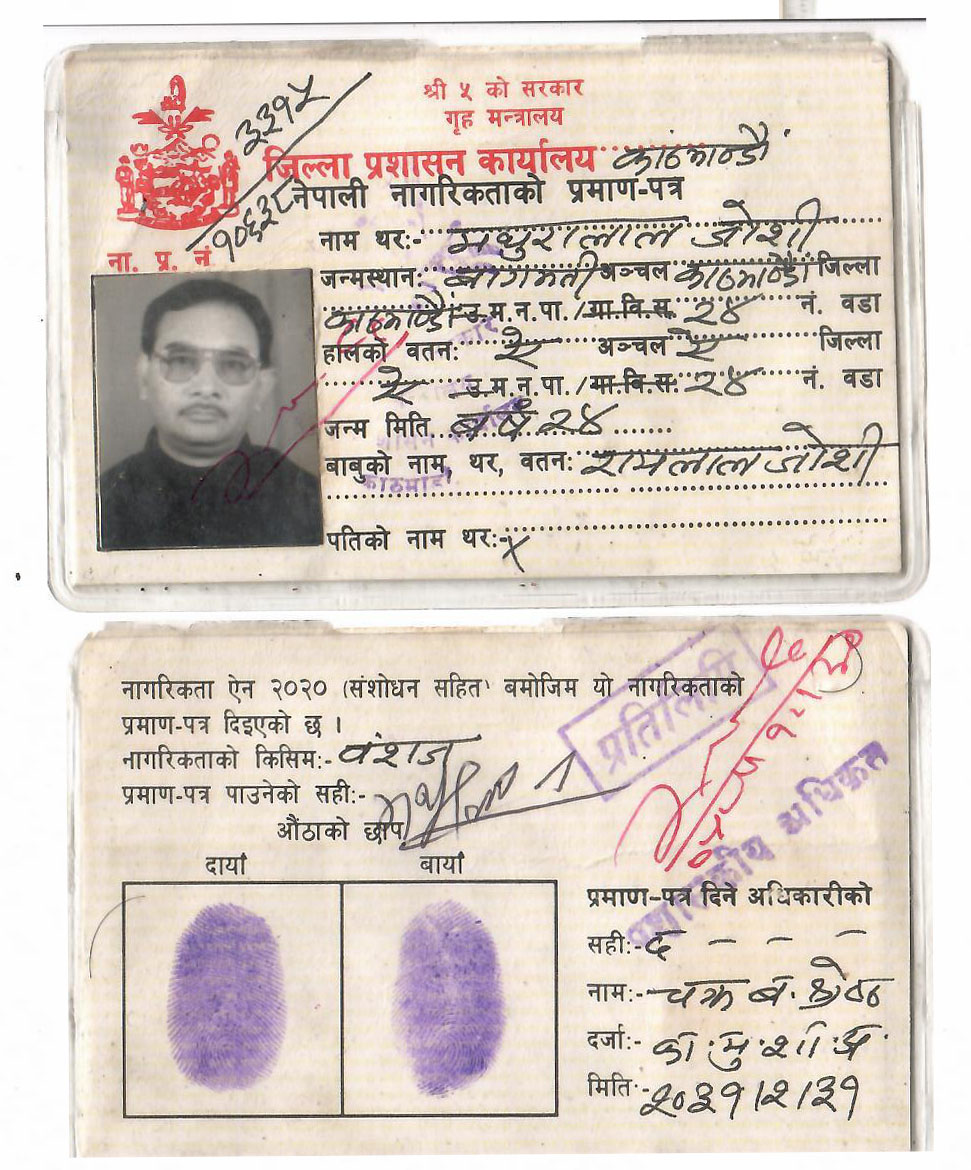 श्री ५ को सरकार
गृह मन्त्रालय
जिल्ला प्रशासन कार्यालय काठमाण्डौं
नेपाली नागरिकताको प्रमाण-पत्र
ना. प्र. नं १०६३८ ३३१५
नाम थर:- मथुरालाल जोशी
जन्मस्थान: बागमती अञ्चल काठमाण्डौं जिल्ला
काठमाण्डौं उ.म.न.पा./गा.वि.स. २४ नं. वडा
हालको वतन: ऐ अञ्चल ऐ जिल्ला
ऐ उ.म.न.पा./गा.वि.स. २४ नं. वडा
जन्म मिति वर्ष २४
बाबुको नाम, थर, वतन: रामलाल जोशी
पतिको नाम थर:- x
नागरिकता ऐन २०२० (संशोधन सहित) बमोजिम यो नागरिकताको
प्रमाण-पत्र दिइएको छ ।
नागरिकताको किसिम:- वंशज
प्रमाण-पत्र पाउनेको सही:-
औंठाको छाप
दायाँ बायाँ
प्रतिलिपी
प्रशासकीय अधिकृत
प्रमाण-पत्र दिने अधिकारीको
सही:- द - - -
नाम:- चक्र ब. श्रेष्ठ
दर्जा:- का.मु.शा.अ.
मिति:- २०३१।२।३१